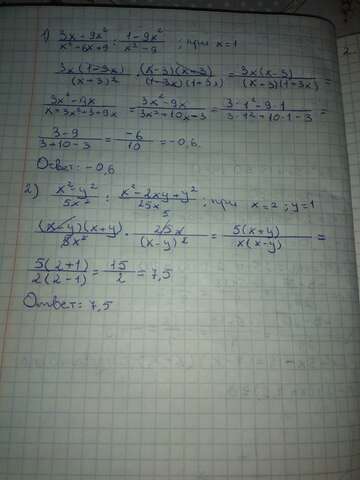 1) (3x-9x²)/(x²+6x+9) : (1-9x²)/(x²-9) ; при x=1
(3x(1-3x))/((x+3)²) · ((x-3)(x+3))/((1-3x)(1+3x)) = (3x(x-3))/((x+3)(1+3x)) =
(3x²-9x)/(x+3x²+3+9x) = (3x²-9x)/(3x²+10x+3) = (3·1²-9·1)/(3·1²+10·1-3) =
(3-9)/(3+10-3) = (-6)/10 = -0,6.
Ответ: -0,6
2) (x²-y²)/(5x²) : (x²-2xy+y²)/(25x) ; при x=2 ; y=1
((x-y)(x+y))/(5x²) · (25x)/((x-y)²) = (5(x+y))/(x(x-y)) =
(5(2+1))/(2(2-1)) = 15/2 = 7,5
Ответ: 7,5